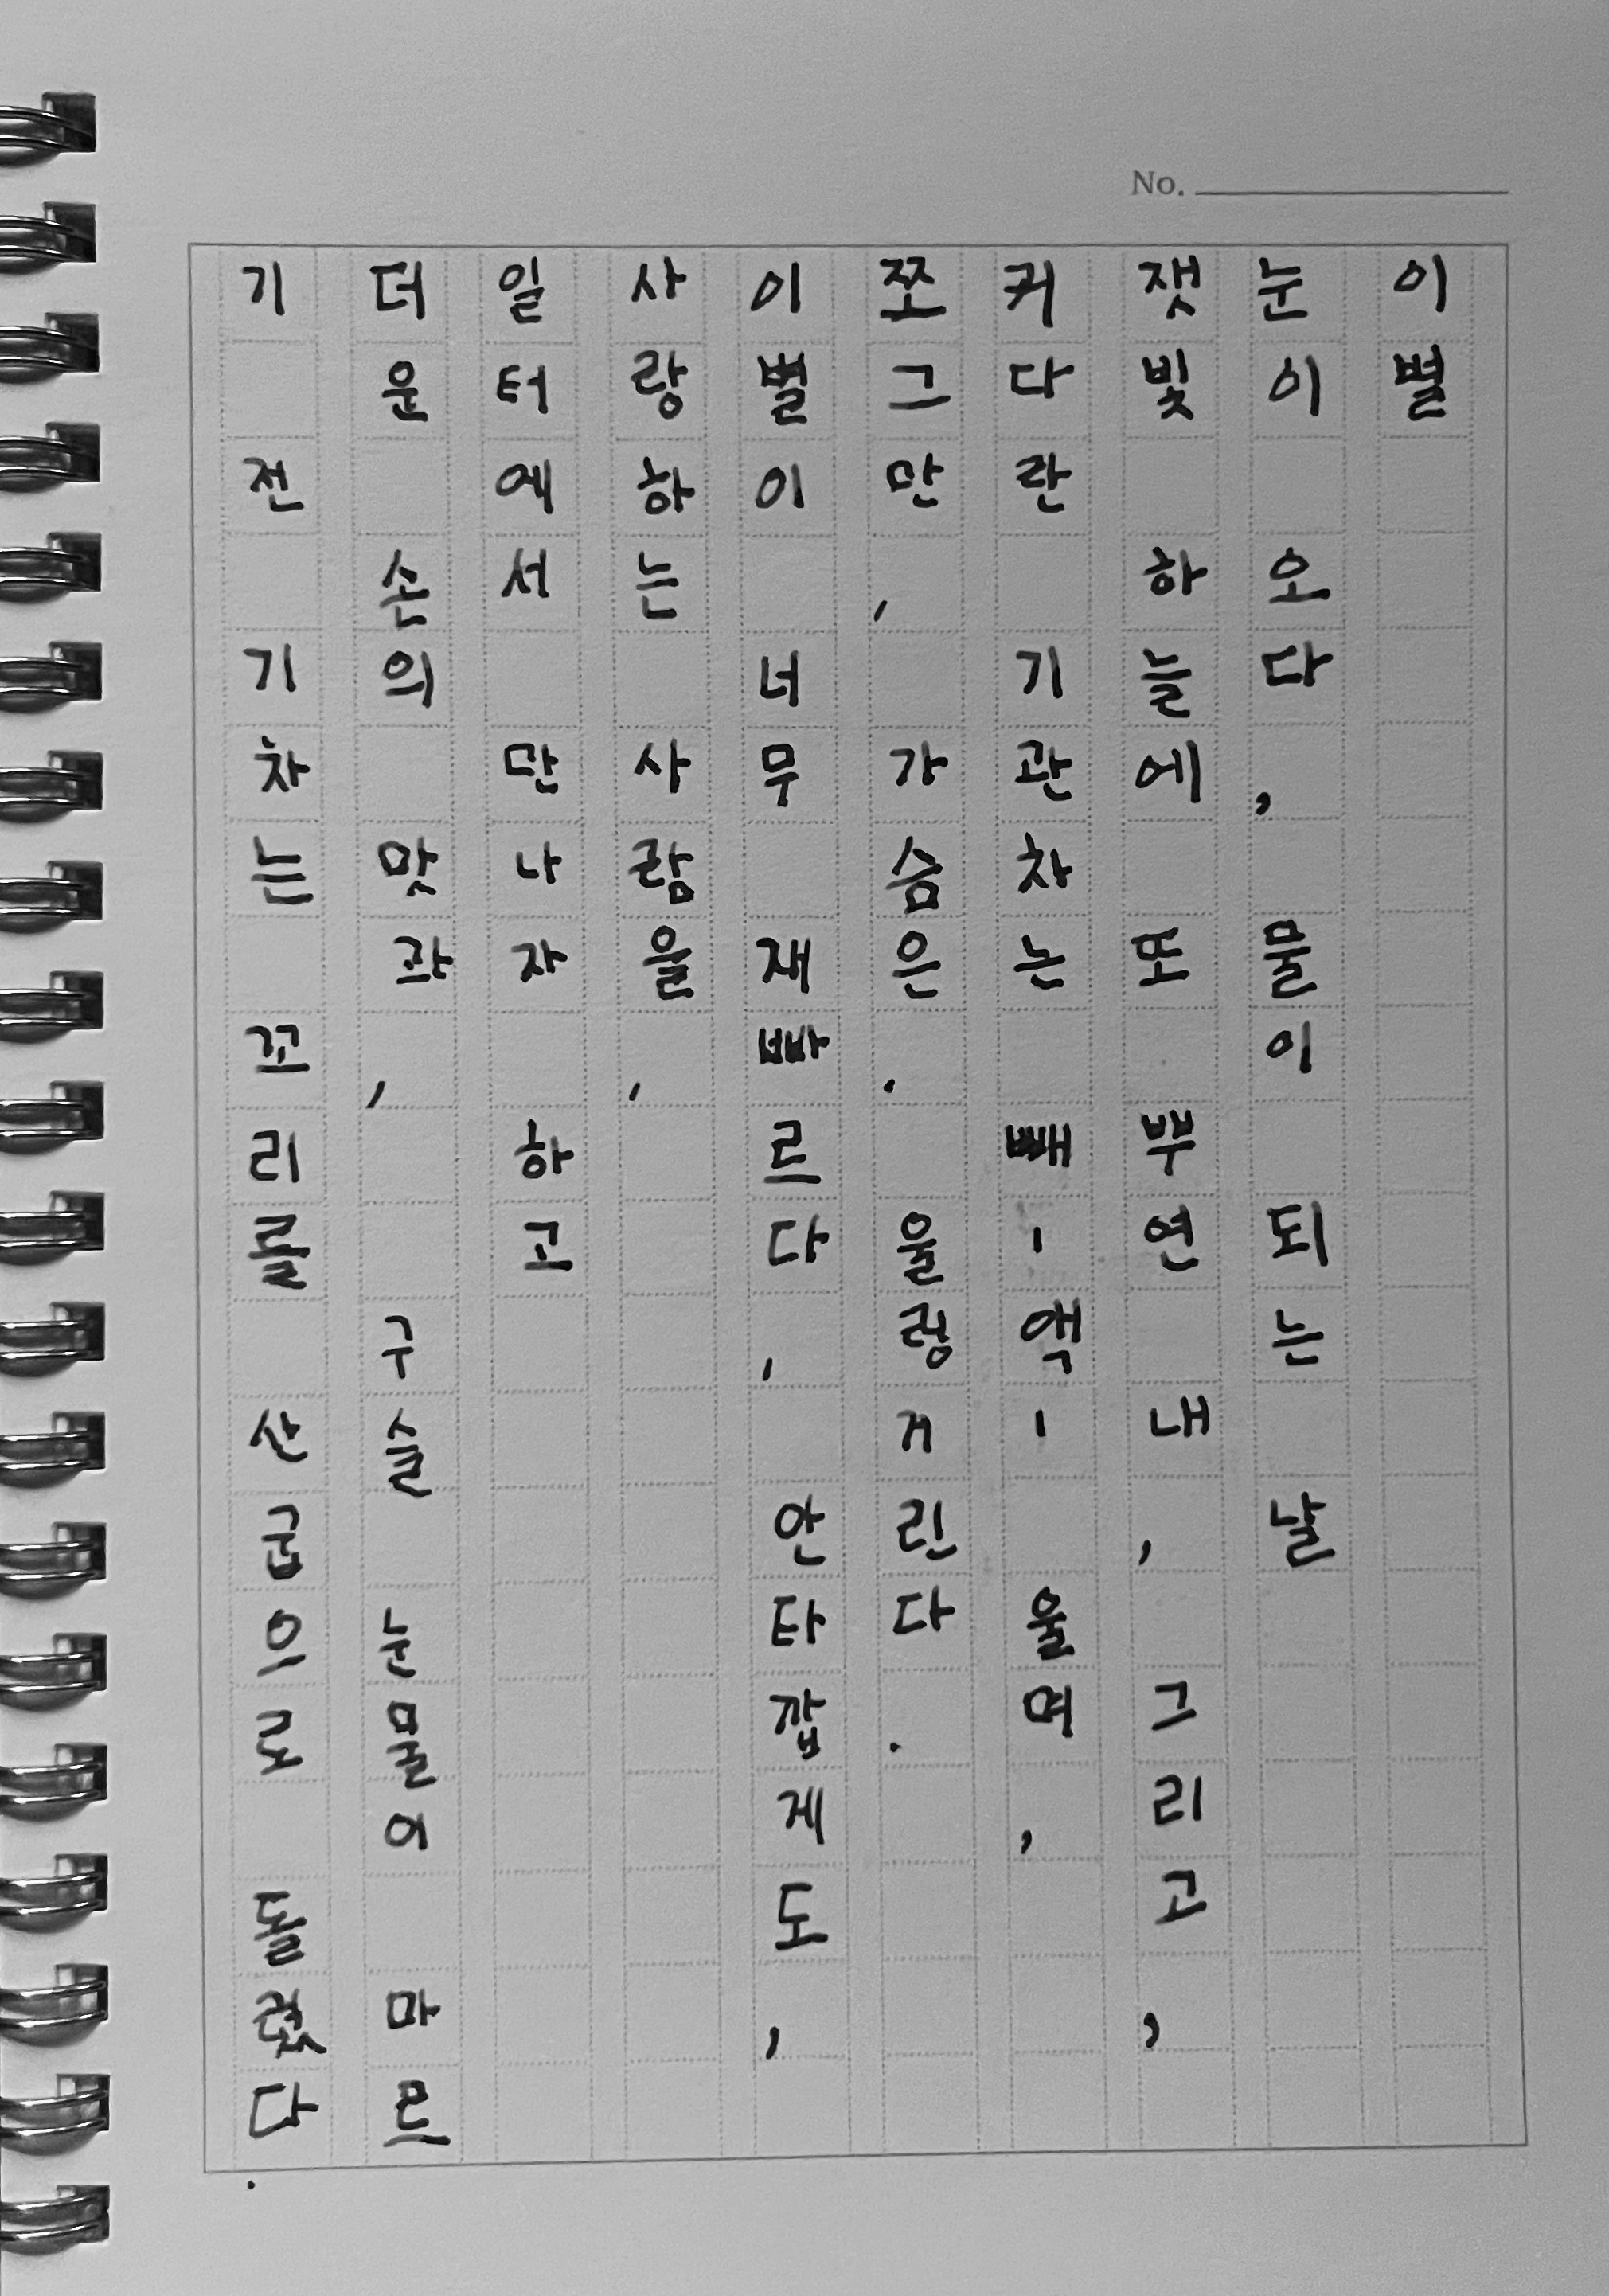 No.
이별
눈이 오다, 물이 되는 날
잿빛 하늘에 또 뿌연 내, 그리고,
커다란 기관차는 빼-액- 울며,
쪼그만, 가슴은. 울렁거린다.
이별이 너무 재빠르다, 안타깝게도,
사랑하는 사람을,
일터에서 만나자 하고
더운 손의 맛과, 구슬 눈물이 마르
기 전 기차는 꼬리를 산굽이로 돌렸다.